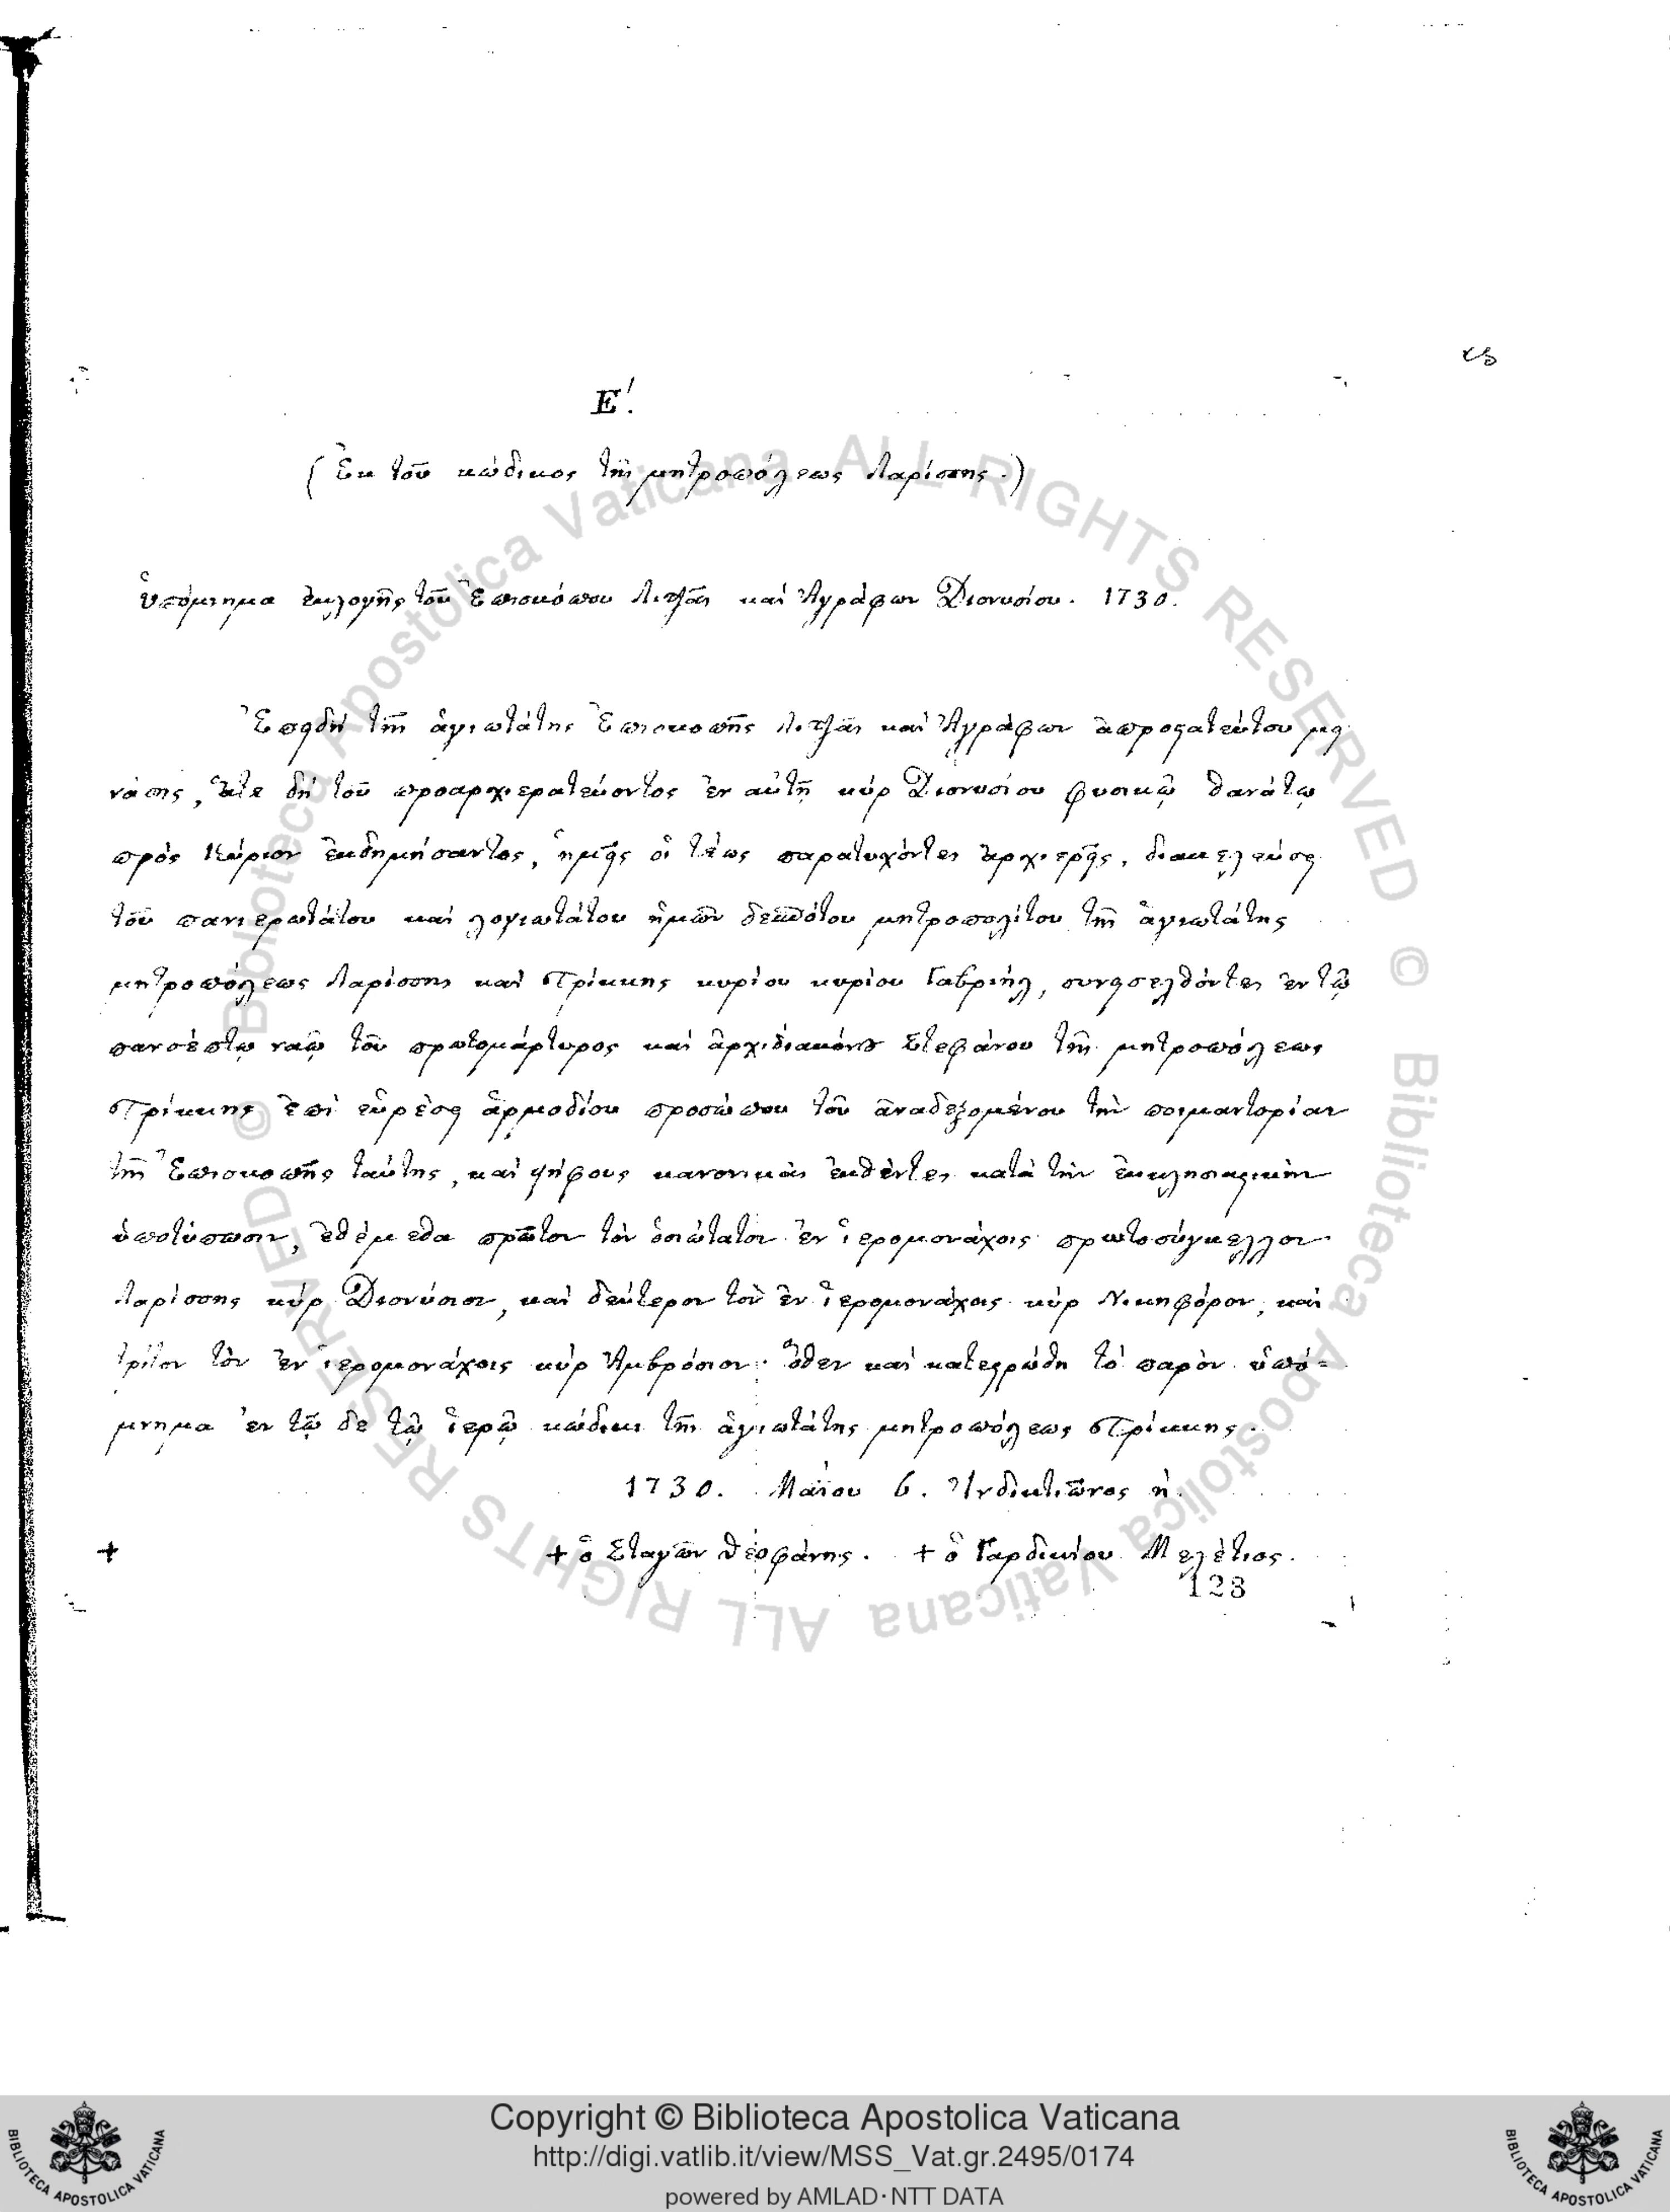 Ε΄.
(Ἐκ τοῦ κώδικος τῆς μητροπόλεως Λαρίσσης.)
Ὑπόμνημα ἐκλογῆς τοῦ Ἐπισκόπου Λιτζᾶς καὶ Ἀγράφων Διονυσίου. 1730.
Ἐπειδὴ τῆς ἁγιωτάτης Ἐπισκοπῆς Λιτζᾶς καὶ Ἀγράφων ἀπροστατεύτου μει
νάσης, ἅτε δὴ τοῦ προαρχιερατεύοντος ἐν αὐτῇ κύρ Διονυσίου φυσικῷ θανάτῳ
πρὸς Κύριον ἐκδημήσαντος, ἡμεῖς οἱ τέως παρατυχόντες ἀρχιερεῖς, διακελεύσει
τοῦ πανιερωτάτου καὶ λογιωτάτου ἡμῶν δεσπότου μητροπολίτου τῆς ἁγιωτάτης
μητροπόλεως Λαρίσσης καὶ Τρίκκης κυρίου κυρίου Γαβριήλ, συνεισελθόντες ἐν τῷ
πανσέπτῳ ναῷ τοῦ πρωτομάρτυρος καὶ ἀρχιδιακόνου Στεφάνου τῆς μητροπόλεως
Τρίκκης ἐπὶ εὑρέσει ἁρμοδίου προσώπου τοῦ ἀναδεξομένου τὴν ποιμαντορίαν
τῆς Ἐπισκοπῆς ταύτης, καὶ ψήφους κανονικὰς ἐκθέντες κατὰ τὴν ἐκκλησιαστικὴν
ὑποτύπωσιν, ἐθέμεθα πρῶτον τὸν ὁσιώτατον ἐν ἱερομονάχοις πρωτοσύγκελλον
Λαρίσσης κύρ Διονύσιον, καὶ δεύτερον τὸν ἐν ἱερομονάχοις κύρ Νικηφόρον, καὶ
τρίτον τὸν ἐν ἱερομονάχοις κύρ Ἀμβρόσιον· ὅθεν καὶ κατεστρώθη τὸ παρὸν ὑπό=
μνημα ἐν τῷ δε τῷ ἱερῷ κώδικι τῆς ἁγιωτάτης μητροπόλεως Τρίκκης.
1730. Μαΐου 6. Ἰνδικτιῶνος η΄.
+ + ὁ Σταγῶν Θεοφάνης. + ὁ Γαρδικίου Μελέτιος.
123
Copyright © Biblioteca Apostolica Vaticana
http://digi.vatlib.it/view/MSS_Vat.gr.2495/0174
powered by AMLAD·NTT DATA
BIBLIOTECA APOSTOLICA VATICANA
BIBLIOTECA APOSTOLICA VATICANA
© Biblioteca Apostolica Vaticana ALL RIGHTS RESERVED © Biblioteca Apostolica Vaticana ALL RIGHTS RESERVED